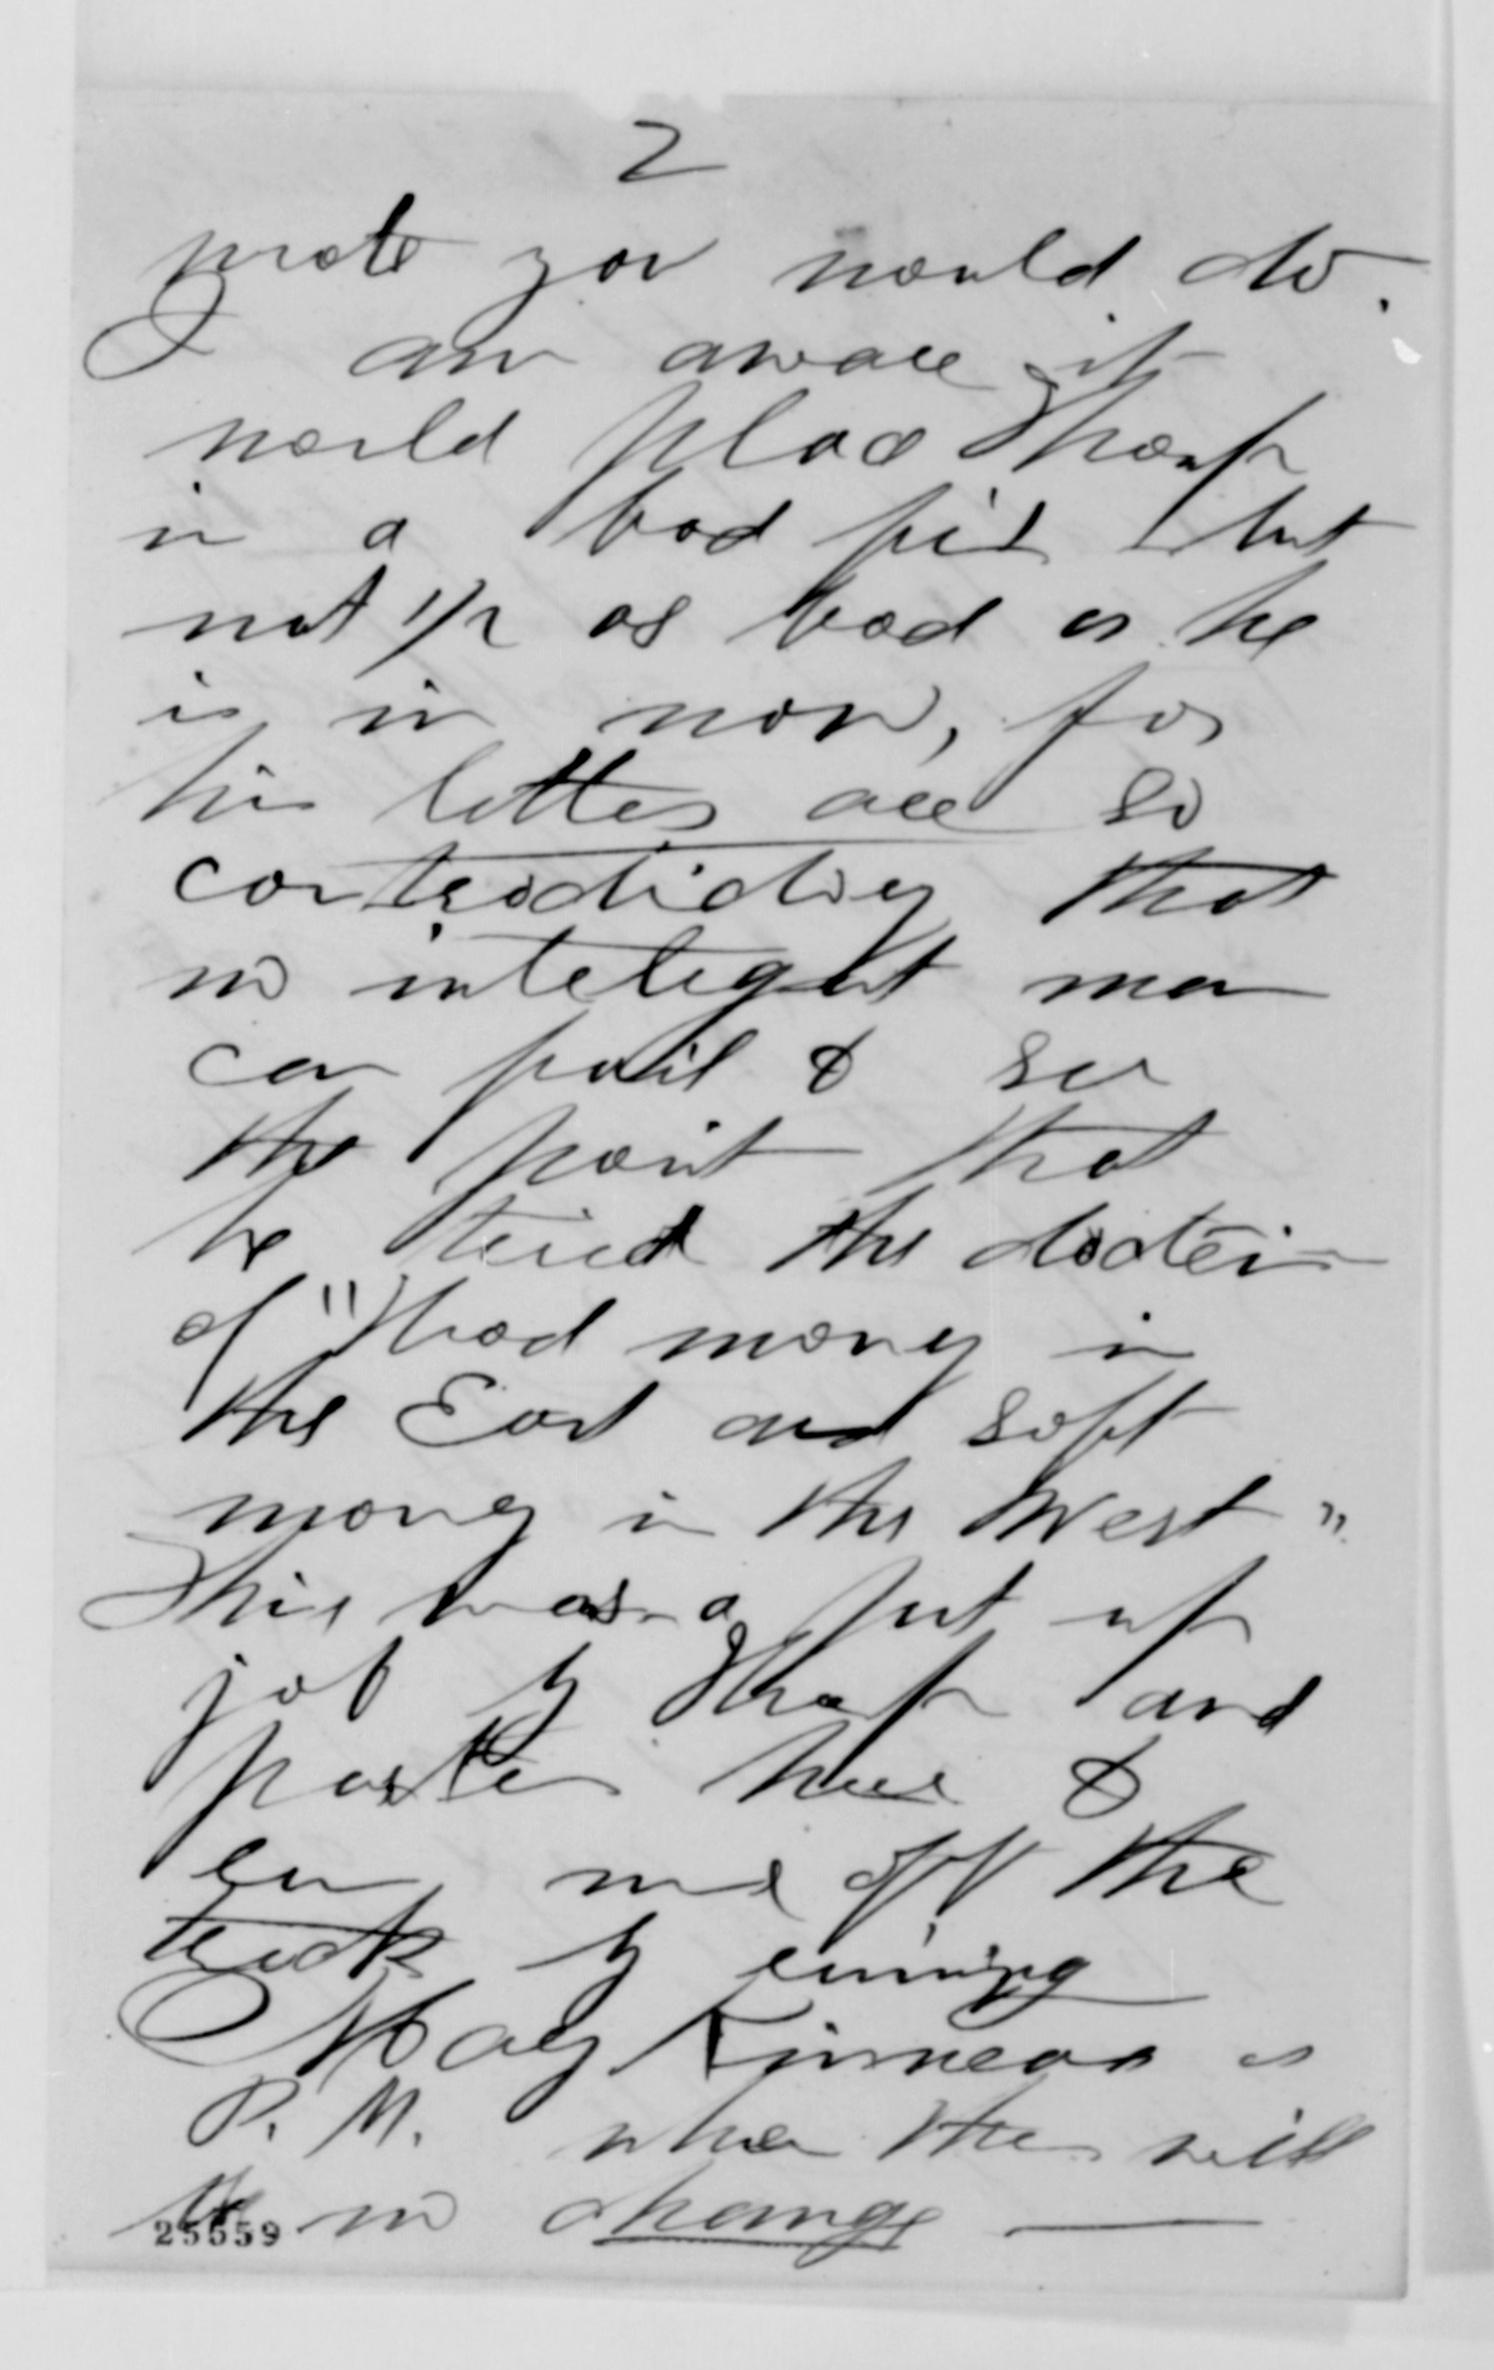 2
wrote you would do.
I am aware it
would place Tharp
in a bad fix but
not 1/2 as bad as he
is in now, for
his letters are so
contradictory that
no inteligent man
can fail to see
the point that
he tried the doctrin
of "Hard money in
the East and soft
money in the West".
This was a put up
job by Tharp and
Porter here to
run me off the
track by running
May Kinnear as
P. M. when ther will
be no change —
25559